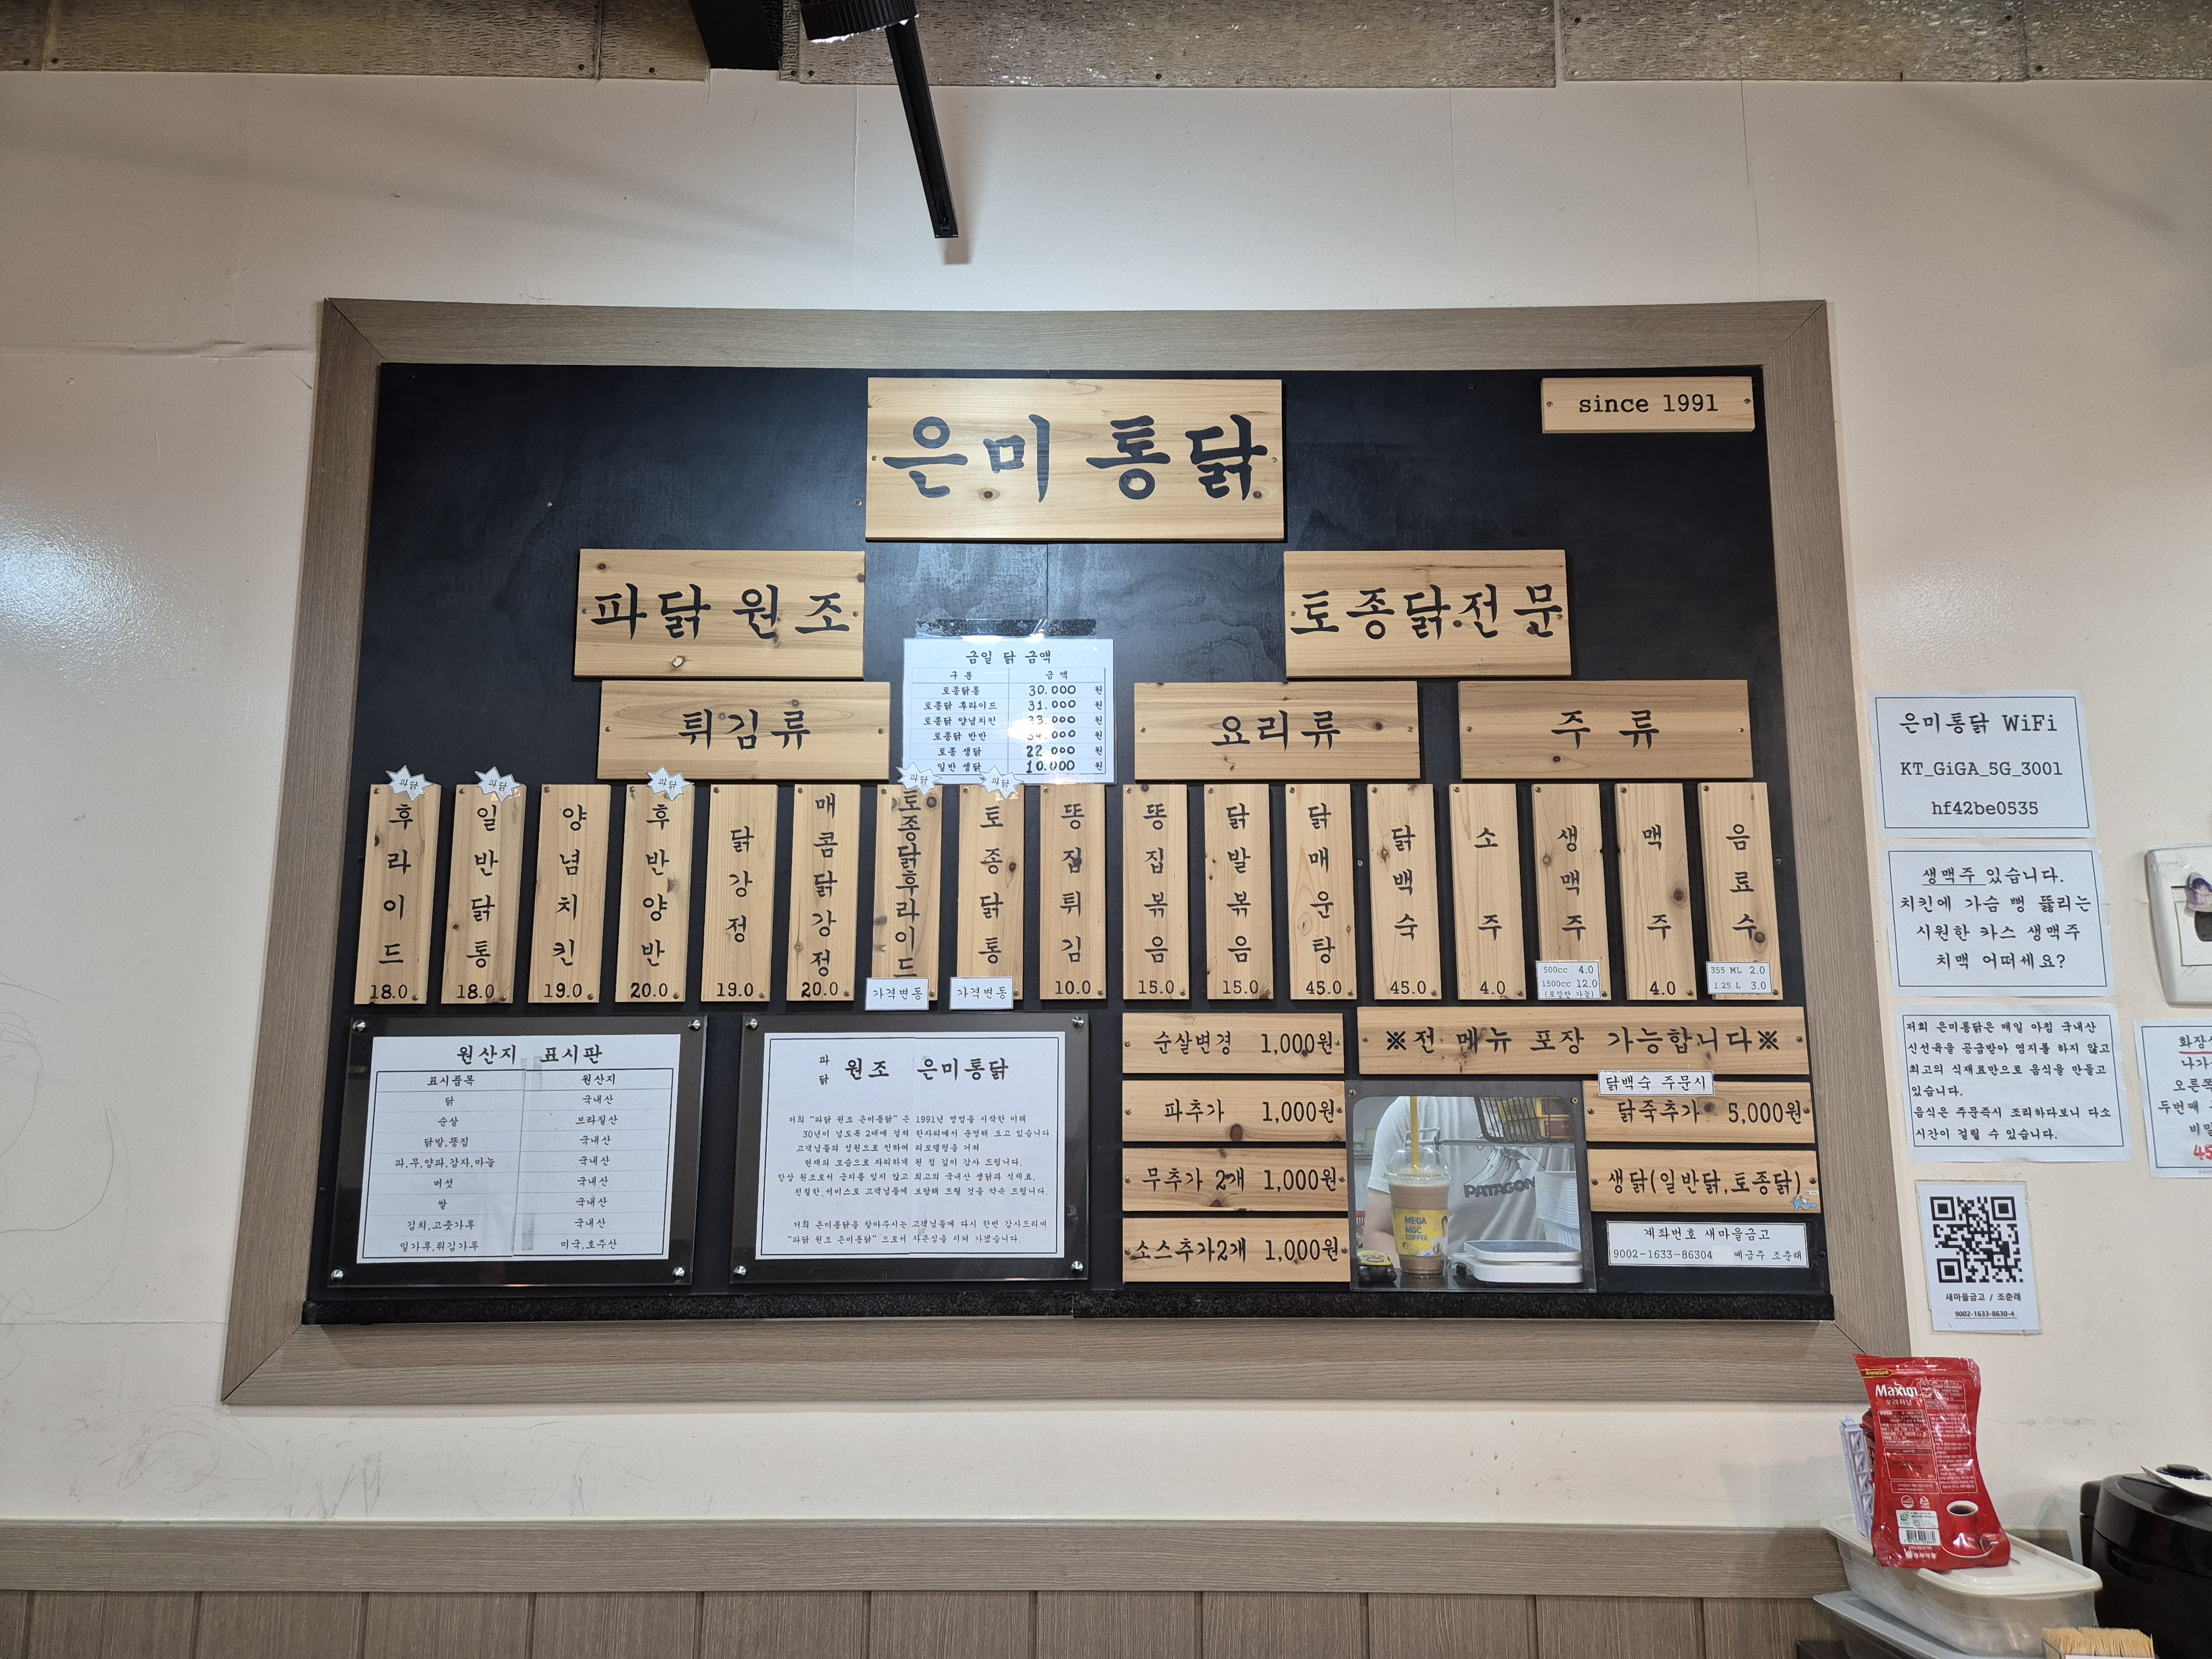 은미통닭
since 1991
파닭 원조
토종닭전문
금일 닭 금액
구분 금액
토종닭통 30.000 원
토종닭 후라이드 31.000 원
토종닭 양념치킨 33.000 원
토종닭 반반 34.000 원
토종 생닭 22.000 원
일반 생닭 10.000 원
튀김류
요리류
주류
파닭
후라이드 18.0
파닭
일반닭통 18.0
양념치킨 19.0
파닭
후반양반 20.0
닭강정 19.0
매콤닭강정 20.0
파닭
토종닭후라이드 가격변동
파닭
토종닭통 가격변동
똥집튀김 10.0
똥집볶음 15.0
닭발볶음 15.0
닭매운탕 45.0
닭백숙 45.0
소주 4.0
생맥주
500cc 4.0
1500cc 12.0
(포장만 가능)
맥주 4.0
음료수
355 ML 2.0
1.25 L 3.0
원산지 표시판
표시품목 원산지
닭 국내산
순살 브라질산
닭발,똥집 국내산
파,무,양파,감자,마늘 국내산
버섯 국내산
쌀 국내산
김치,고춧가루 국내산
밀가루,튀김가루 미국,호주산
파닭 원조 은미통닭
저희 "파닭 원조 은미통닭" 은 1991년 영업을 시작한 이래
30년이 넘도록 2대에 걸쳐 한자리에서 운영해 오고 있습니다.
고객님들의 성원으로 인하여 리모델링을 거쳐
현재의 모습으로 자리하게 된 점 깊이 감사 드립니다.
항상 원조로서 긍지를 잊지 않고 최고의 국내산 생닭과 식재료,
친절한 서비스로 고객님들께 보답해 드릴 것을 약속 드립니다.
저희 은미통닭을 찾아주시는 고객님들께 다시 한번 감사드리며
"파닭 원조 은미통닭" 으로서 자존심을 지켜 가겠습니다.
순살변경 1,000원
파추가 1,000원
무추가 2개 1,000원
소스추가2개 1,000원
※전 메뉴 포장 가능합니다※
닭백숙 주문시
닭죽추가 5,000원
생닭(일반닭,토종닭)
계좌번호 새마을금고
9002-1633-86304 예금주 조춘래
PATAGON
MEGA
MGC
COFFEE
은미통닭 WiFi
KT_GiGA_5G_3001
hf42be0535
생맥주 있습니다.
치킨에 가슴 뻥 뚫리는
시원한 카스 생맥주
치맥 어떠세요?
저희 은미통닭은 매일 아침 국내산
신선육을 공급받아 염지를 하지 않고
최고의 식재료만으로 음식을 만들고
있습니다.
음식은 주문즉시 조리하다보니 다소
시간이 걸릴 수 있습니다.
나가
오른쪽
두번째
새마을금고 / 조춘래
9002-1633-8630-4
Maxim
오리지날